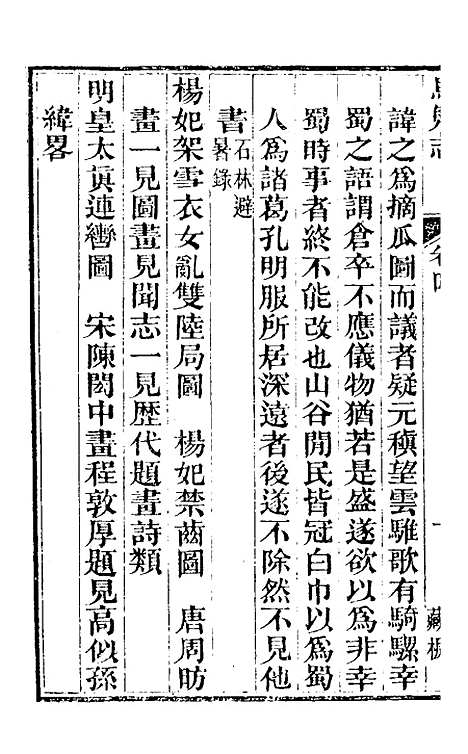 諱之爲摘瓜圖而議者疑元稹望雲騅歌有騎騾幸
蜀之語謂倉卒不應儀物猶若是盛遂欲以爲非幸
蜀時事者終不能改也山谷閒民皆冠白巾以爲蜀
人爲諸葛孔明服所居深遠者後遂不除然不見他
書石林避暑錄
楊妃架雪衣女亂雙陸局圖　楊妃禁齒圖　唐周昉
畫一見圖畫見聞志一見歷代題畫詩類
明皇太眞連轡圖　宋陳閎中畫程敦厚題見高似孫
緯畧